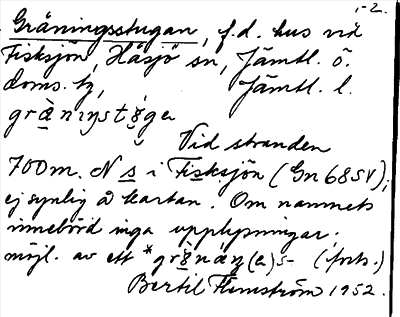 1-2.
Gråningsstugan, f.d. hus vid
Fisksjön, Håsjö sn, Jämtl. ö.
doms. tg, Jämtl. l.
grànıŋstǝga
Vid stranden
700 m. N s i Fisksjön (Gn 68 SV);
ej synlig å kartan. Om namnets
innebörd inga upplysningar;
möjl. av ett *grǝ̀nàŋ(a)s- (forts.)
Bertil Flemström 1952.